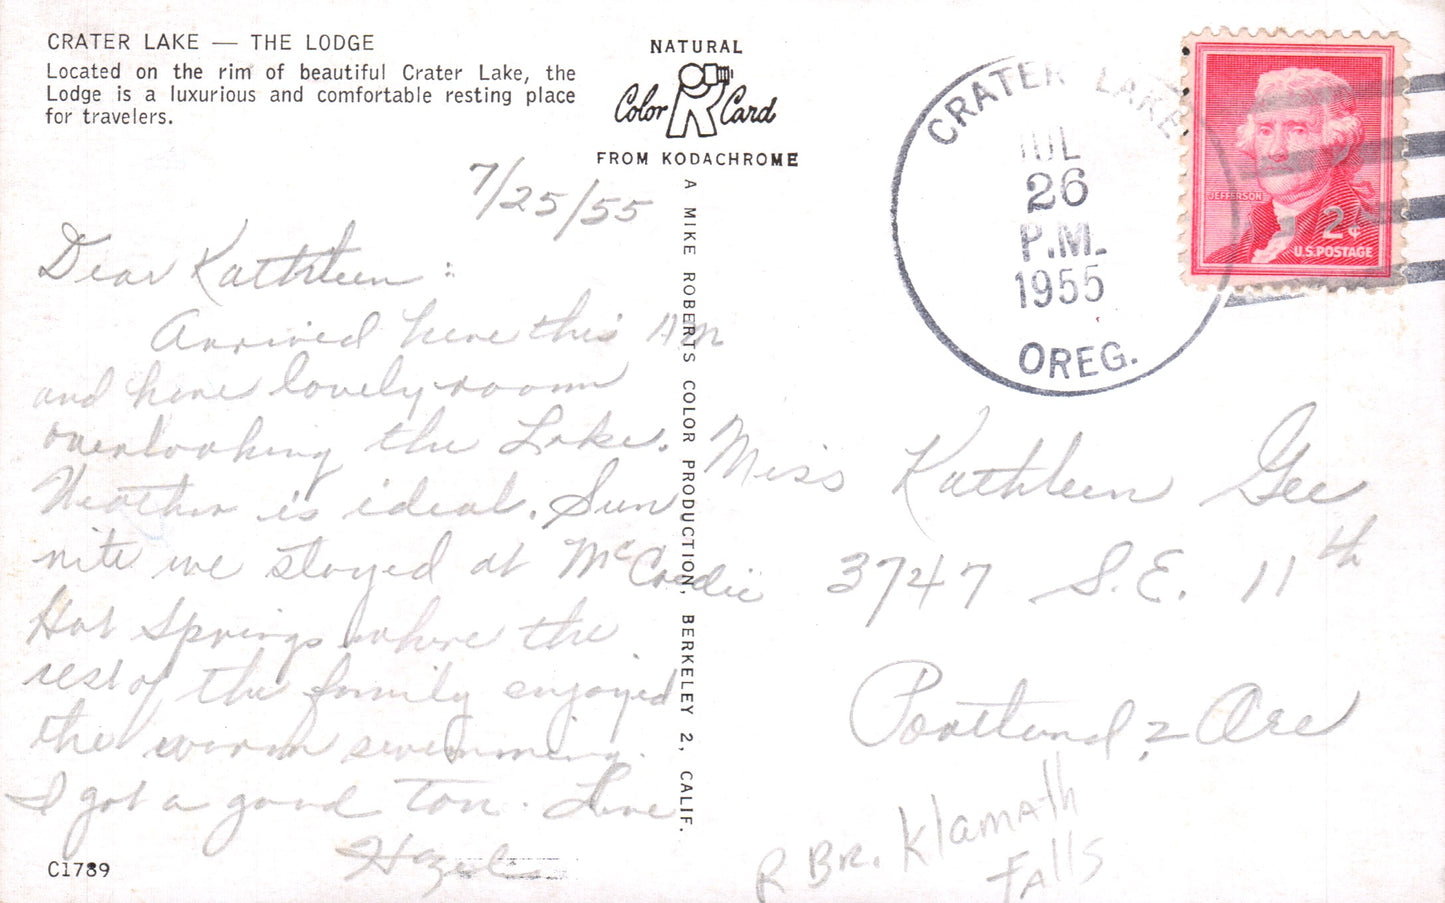 CRATER LAKE — THE LODGE
Located on the rim of beautiful Crater Lake, the
Lodge is a luxurious and comfortable resting place
for travelers.
NATURAL
Color Card
FROM KODACHROME
A MIKE ROBERTS COLOR PRODUCTION, BERKELEY 2, CALIF.
7/25/55
Dear Kathleen :
Arrived here this AM
and have lovely room
overlooking the Lake.
Weather is ideal. Sun
nite we stayed at McCredie
Hot Springs where the
rest of the family enjoyed
the warm swimming.
I got a good tan. Love
Hazel
C1789
CRATER LAKE
JUL
26
P.M.
1955
OREG.
JEFFERSON
2¢
U.S. POSTAGE
Miss Kathleen Gee
3747 S.E. 11th
Portland, 2 Ore
R BR. Klamath
Falls